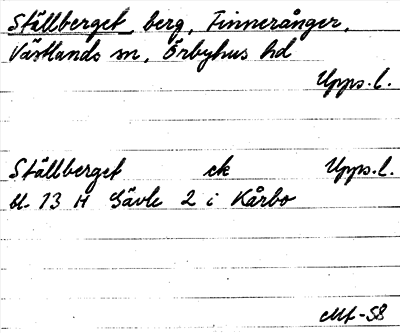 Ställberget berg, Finneränger,
Västlands sn, Örbyhus hd
Upps.l.
Ställberget ek Upps.l.
bl. 13 H Gävle 2 i Kårbo
Mf-58